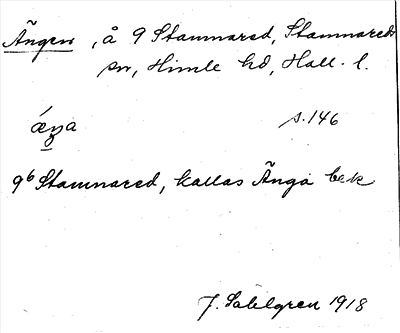 Ängen, å 9 Stamnared, Stamnareds
sn, Himle hd, Hall. l.
ǽŋa s.146
9b Stamnared, kallas Änga bæk
J. Sahlgren 1918